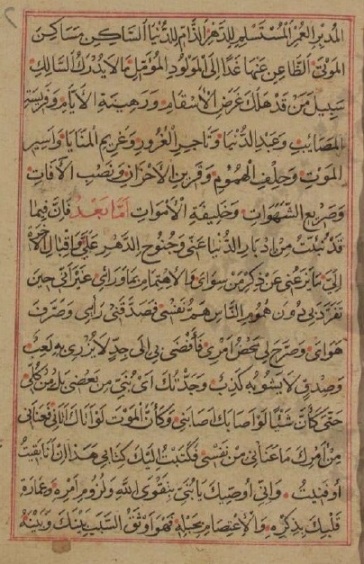 المدبر العمر المستسلم للدهر الذام للدنيا الساكن مساكن
الموتى الظاعن عنها غدا إلى المولود المؤمل ما لا يدرك السالك
سبيل من قد هلك غرض الأسقام ورهينة الأيام ورمية
المصايب وعبد الدنيا وتاجر الغرور وغريم المنايا وأسير
الموت وحليف الهموم وقرين الأحزان ونصب الآفات
وصريع الشهوات وخليفة الأموات أما بعد فإن فيما
قد تبينت من إدبار الدنيا عني وجنوح الدهر علي وإقبال الآخرة
إلي ما يزعني عن ذكر من سواي والاهتمام بما ورائي غير أني حين
تفرد بي دون هموم الناس هم نفسي فصدقني رأيي وصرفني
هواي وصرح لي محض أمري فأفضى بي إلى جد لا يزري به لعب
وصدق لا يشوبه كذب وجدتك أي بني من بعضي بل من كلي
حتى كأن شيئا لو أصابك أصابني وكأن الموت لو أتاك أتاني فعناني
من أمرك ما عناني من نفسي فكتبت إليك كتابي هذا إن أنا بقيت
أو فنيت وإني أوصيك يا بني بتقوى الله ولزوم أمره وعمارة
قلبك بذكره والاعتصام بحبله فهو أوثق السبب بينك وبينه